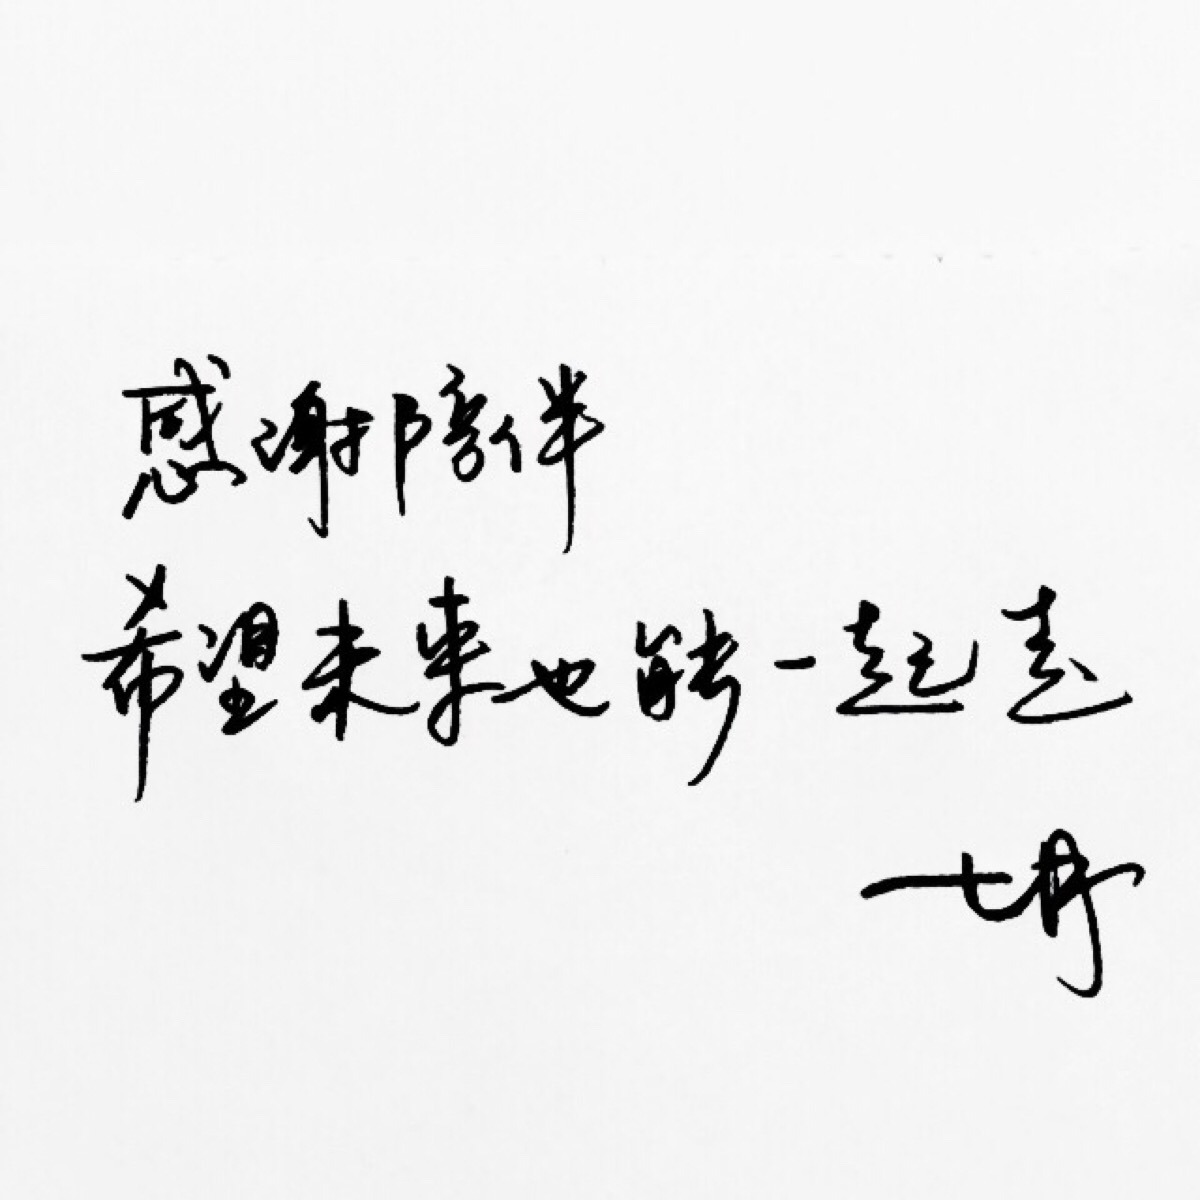 感谢陪伴
希望未来也能一起走